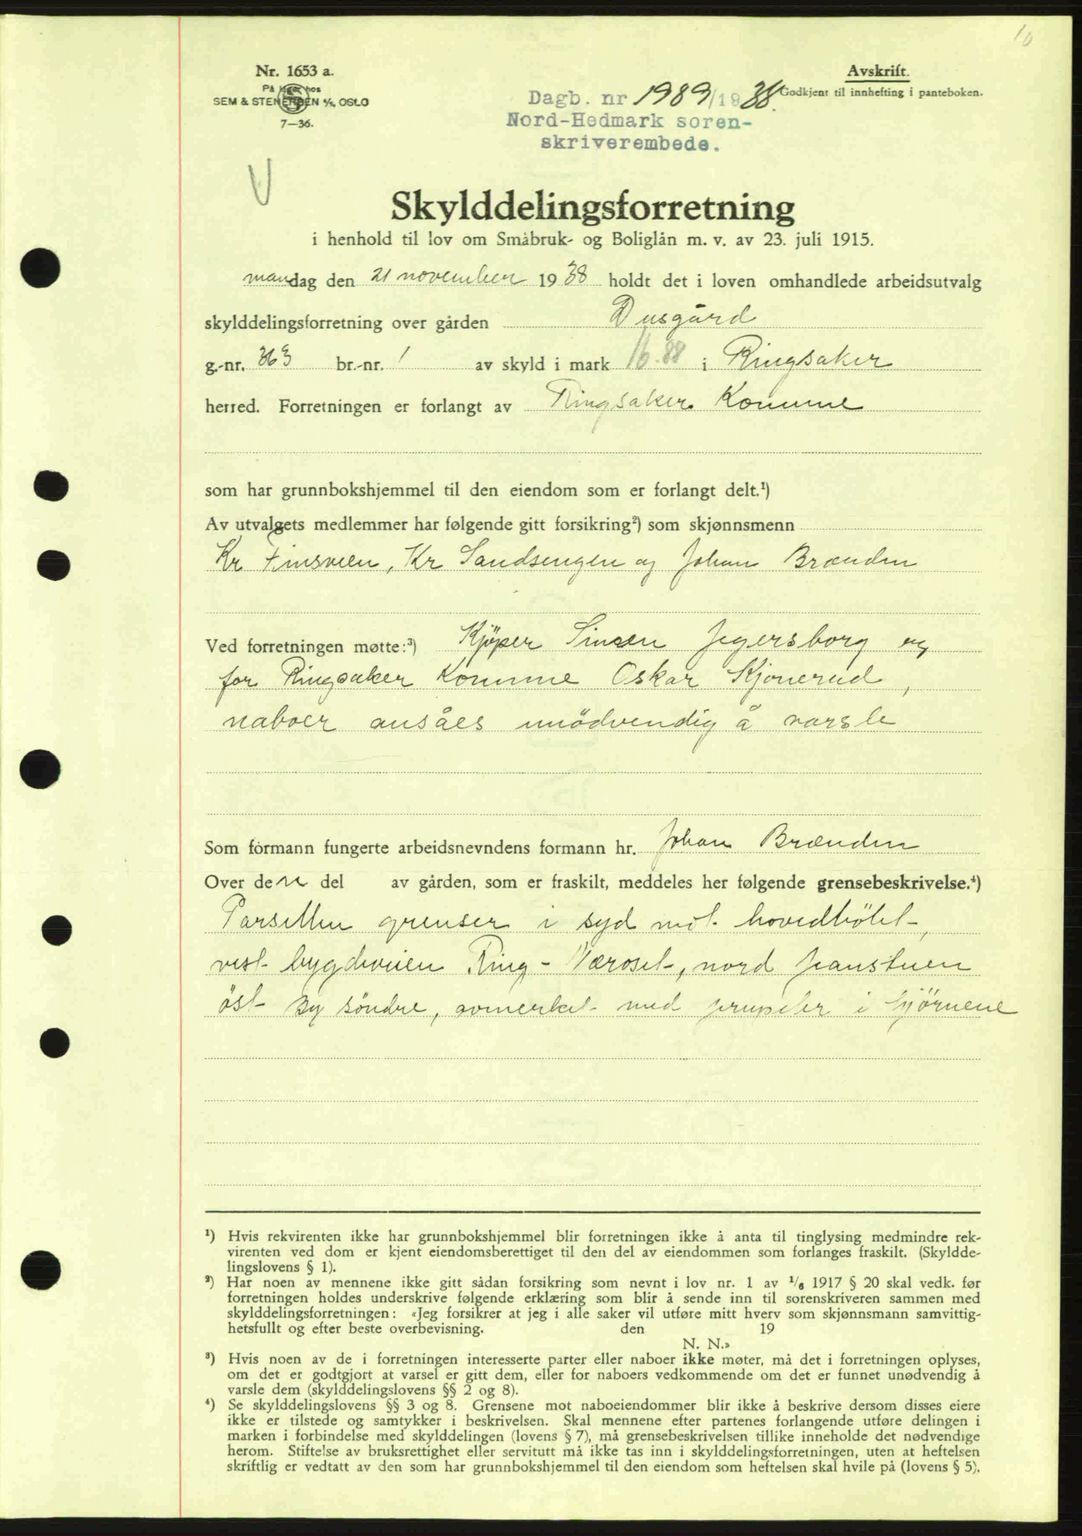 10
Nr. 1653 a.
På lager hos
SEM & STENERSEN A/S, OSLO
7-36.
Avskrift.
Godkjent til innhefting i panteboken.
Dagb. nr 1989/1938.
Nord-Hedmark soren-
skriverembede.
V
Skylddelingsforretning
i henhold til lov om Småbruk- og Boliglån m. v. av 23. juli 1915.
mandag den 21 november 1938 holdt det i loven omhandlede arbeidsutvalg
skylddelingsforretning over gården Dusgård
g.-nr. 363 br.-nr. 1 av skyld i mark 16.88 i Ringsaker
herred. Forretningen er forlangt av Ringsaker Komune
som har grunnbokshjemmel til den eiendom som er forlangt delt.¹)
Av utvalgets medlemmer har følgende gitt forsikring²) som skjønnsmenn
Kr Finsveen, Kr Sandsengen og Johan Brænden
Ved forretningen møtte:³) Kjöper Simen Jegersborg og
for Ringsaker Komune Oskar Skjonerud,
naboer ansåes unödvendig å varsle
Som formann fungerte arbeidsnevndens formann hr. Johan Brænden
Over den del av gården, som er fraskilt, meddeles her følgende grensebeskrivelse.⁴)
Parsellen grenser i syd mot hovedbölet,
vest bygdeveien Ring - Næroset, nord
öst By söndre, avmerket med i hjörnene
¹) Hvis rekvirenten ikke har grunnbokshjemmel blir forretningen ikke å anta til tinglysing medmindre rek-
virenten ved dom er kjent eiendomsberettiget til den del av eiendommen som forlanges fraskilt. (Skyldde-
lingslovens § 1).
²) Har noen av mennene ikke gitt sådan forsikring som nevnt i lov nr. 1 av 1/6 1917 § 20 skal vedk. før
forretningen holdes underskrive følgende erklæring som blir å sende inn til sorenskriveren sammen med
skylddelingsforretningen: «Jeg forsikrer at jeg i alle saker vil utføre mitt hverv som skjønnsmann samvittig-
hetsfullt og efter beste overbevisning. den 19
N. N.»
³) Hvis noen av de i forretningen interesserte parter eller naboer ikke møter, må det i forretningen oplyses,
om det er godtgjort at varsel er gitt dem, eller for naboers vedkommende om det er funnet unødvendig å
varsle dem (skylddelingslovens §§ 2 og 8).
⁴) Se skylddelingslovens §§ 3 og 8. Grensene mot naboeiendommer blir ikke å beskrive dersom disses eiere
ikke er tilstede og samtykker i beskrivelsen. Skal mennene efter partenes forlangende utføre delingen i
marken i forbindelse med skylddelingen (lovens § 7), må grensebeskrivelsen tillike inneholde det nødvendige
herom. Stiftelse av bruksrettighet eller servitutt må ikke tas inn i skylddelingsforretningen, uten at heftelsen
skriftlig er vedtatt av den som har grunnbokshjemmel til den eiendom som heftelsen skal hvile på (lovens § 5).